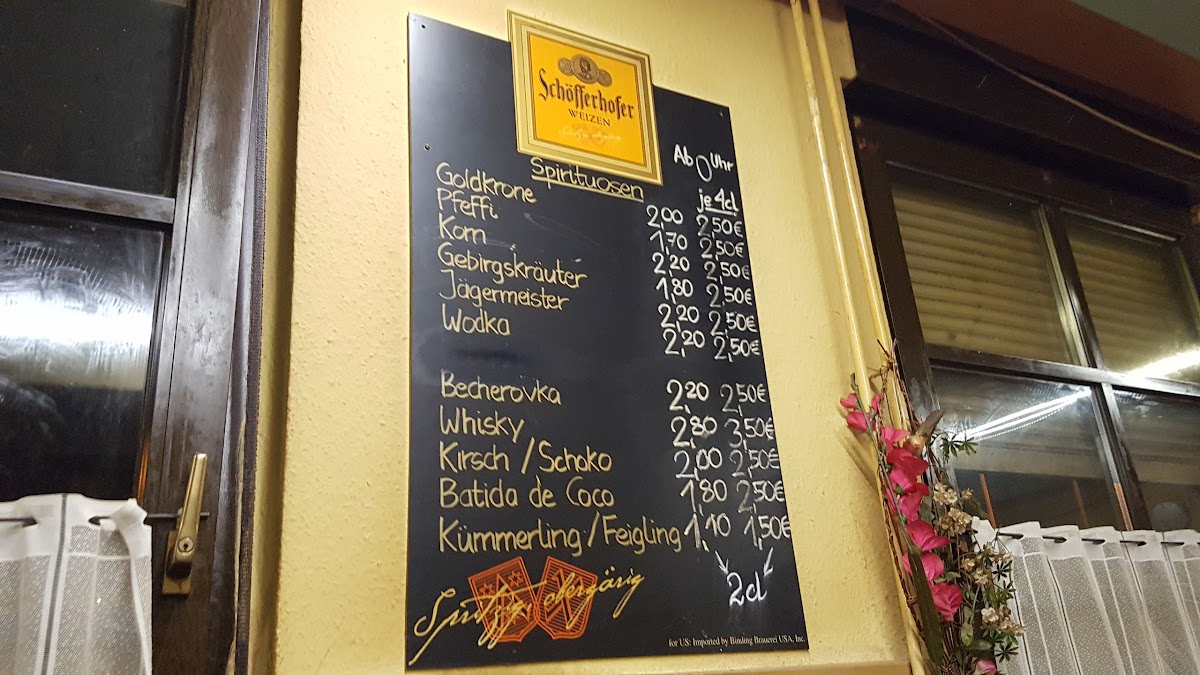 Schöfferhofer
WEIZEN
Spirituosen
Ab 0 Uhr
je 4cl
Goldkrone 2,00 2,50€
Pfeffi 1,70 2,50€
Korn 2,20 2,50€
Gebirgskräuter 1,80 2,50€
Jägermeister 2,20 2,50€
Wodka 2,20 2,50€
Becherovka 2,20 2,50€
Whisky 2,80 3,50€
Kirsch / Schoko 2,00 2,50€
Batida de Coco 1,80 2,50€
Kümmerling / Feigling 1,10 1,50€
2cl
Spritzig, obergärig
for US: Imported by Binding Brauerei USA, Inc.